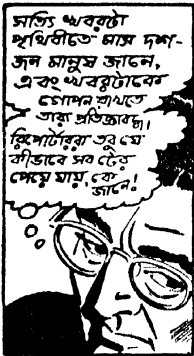 সত্যি খবরটা
পৃথিবীতে মাস দশ-
জন মানুষ জানে,
এবং খবরটাকে
গোপন রাখতে
তারা প্রতিজ্ঞাবদ্ধ।
রিপোর্টাররা তবু যে
কীভাবে সব টের
পেয়ে যায়, কে
জানে!